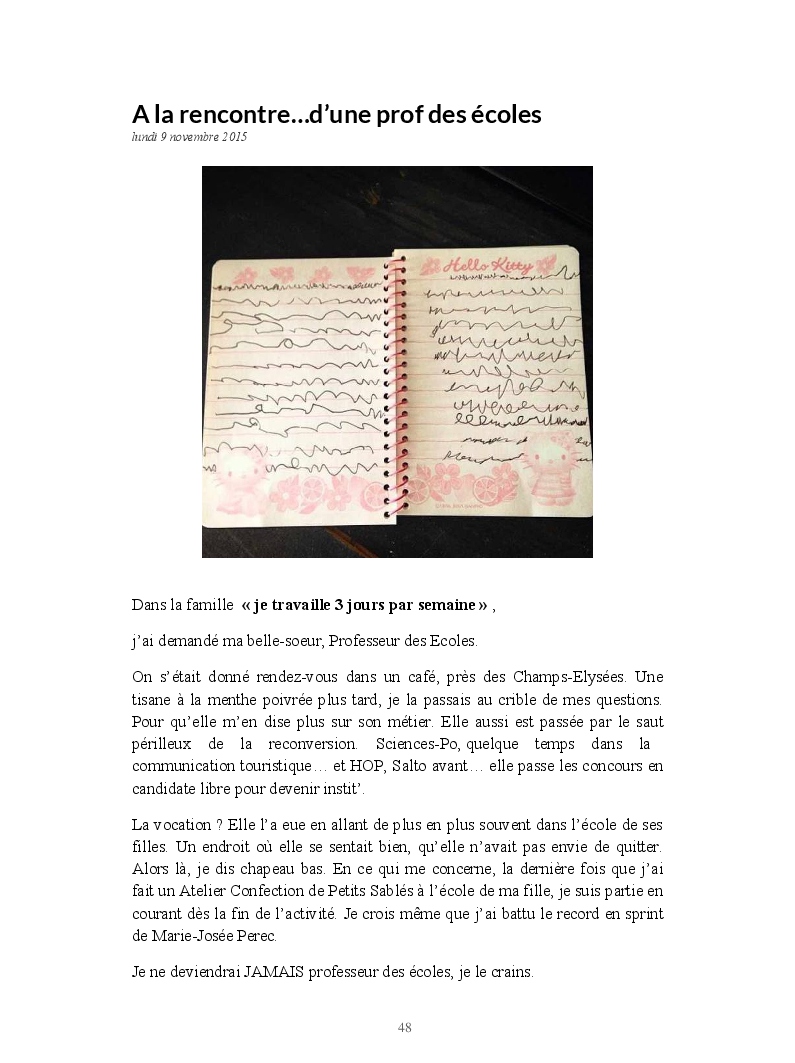 A la rencontre…d’une prof des écoles
lundi 9 novembre 2015
Hello Kitty
Dans la famille « je travaille 3 jours par semaine » ,
j’ai demandé ma belle-soeur, Professeur des Ecoles.
On s’était donné rendez-vous dans un café, près des Champs-Elysées. Une
tisane à la menthe poivrée plus tard, je la passais au crible de mes questions.
Pour qu’elle m’en dise plus sur son métier. Elle aussi est passée par le saut
périlleux de la reconversion. Sciences-Po, quelque temps dans la
communication touristique… et HOP, Salto avant… elle passe les concours en
candidate libre pour devenir instit’.
La vocation ? Elle l’a eue en allant de plus en plus souvent dans l’école de ses
filles. Un endroit où elle se sentait bien, qu’elle n’avait pas envie de quitter.
Alors là, je dis chapeau bas. En ce qui me concerne, la dernière fois que j’ai
fait un Atelier Confection de Petits Sablés à l’école de ma fille, je suis partie en
courant dès la fin de l’activité. Je crois même que j’ai battu le record en sprint
de Marie-Josée Perec.
Je ne deviendrai JAMAIS professeur des écoles, je le crains.
48